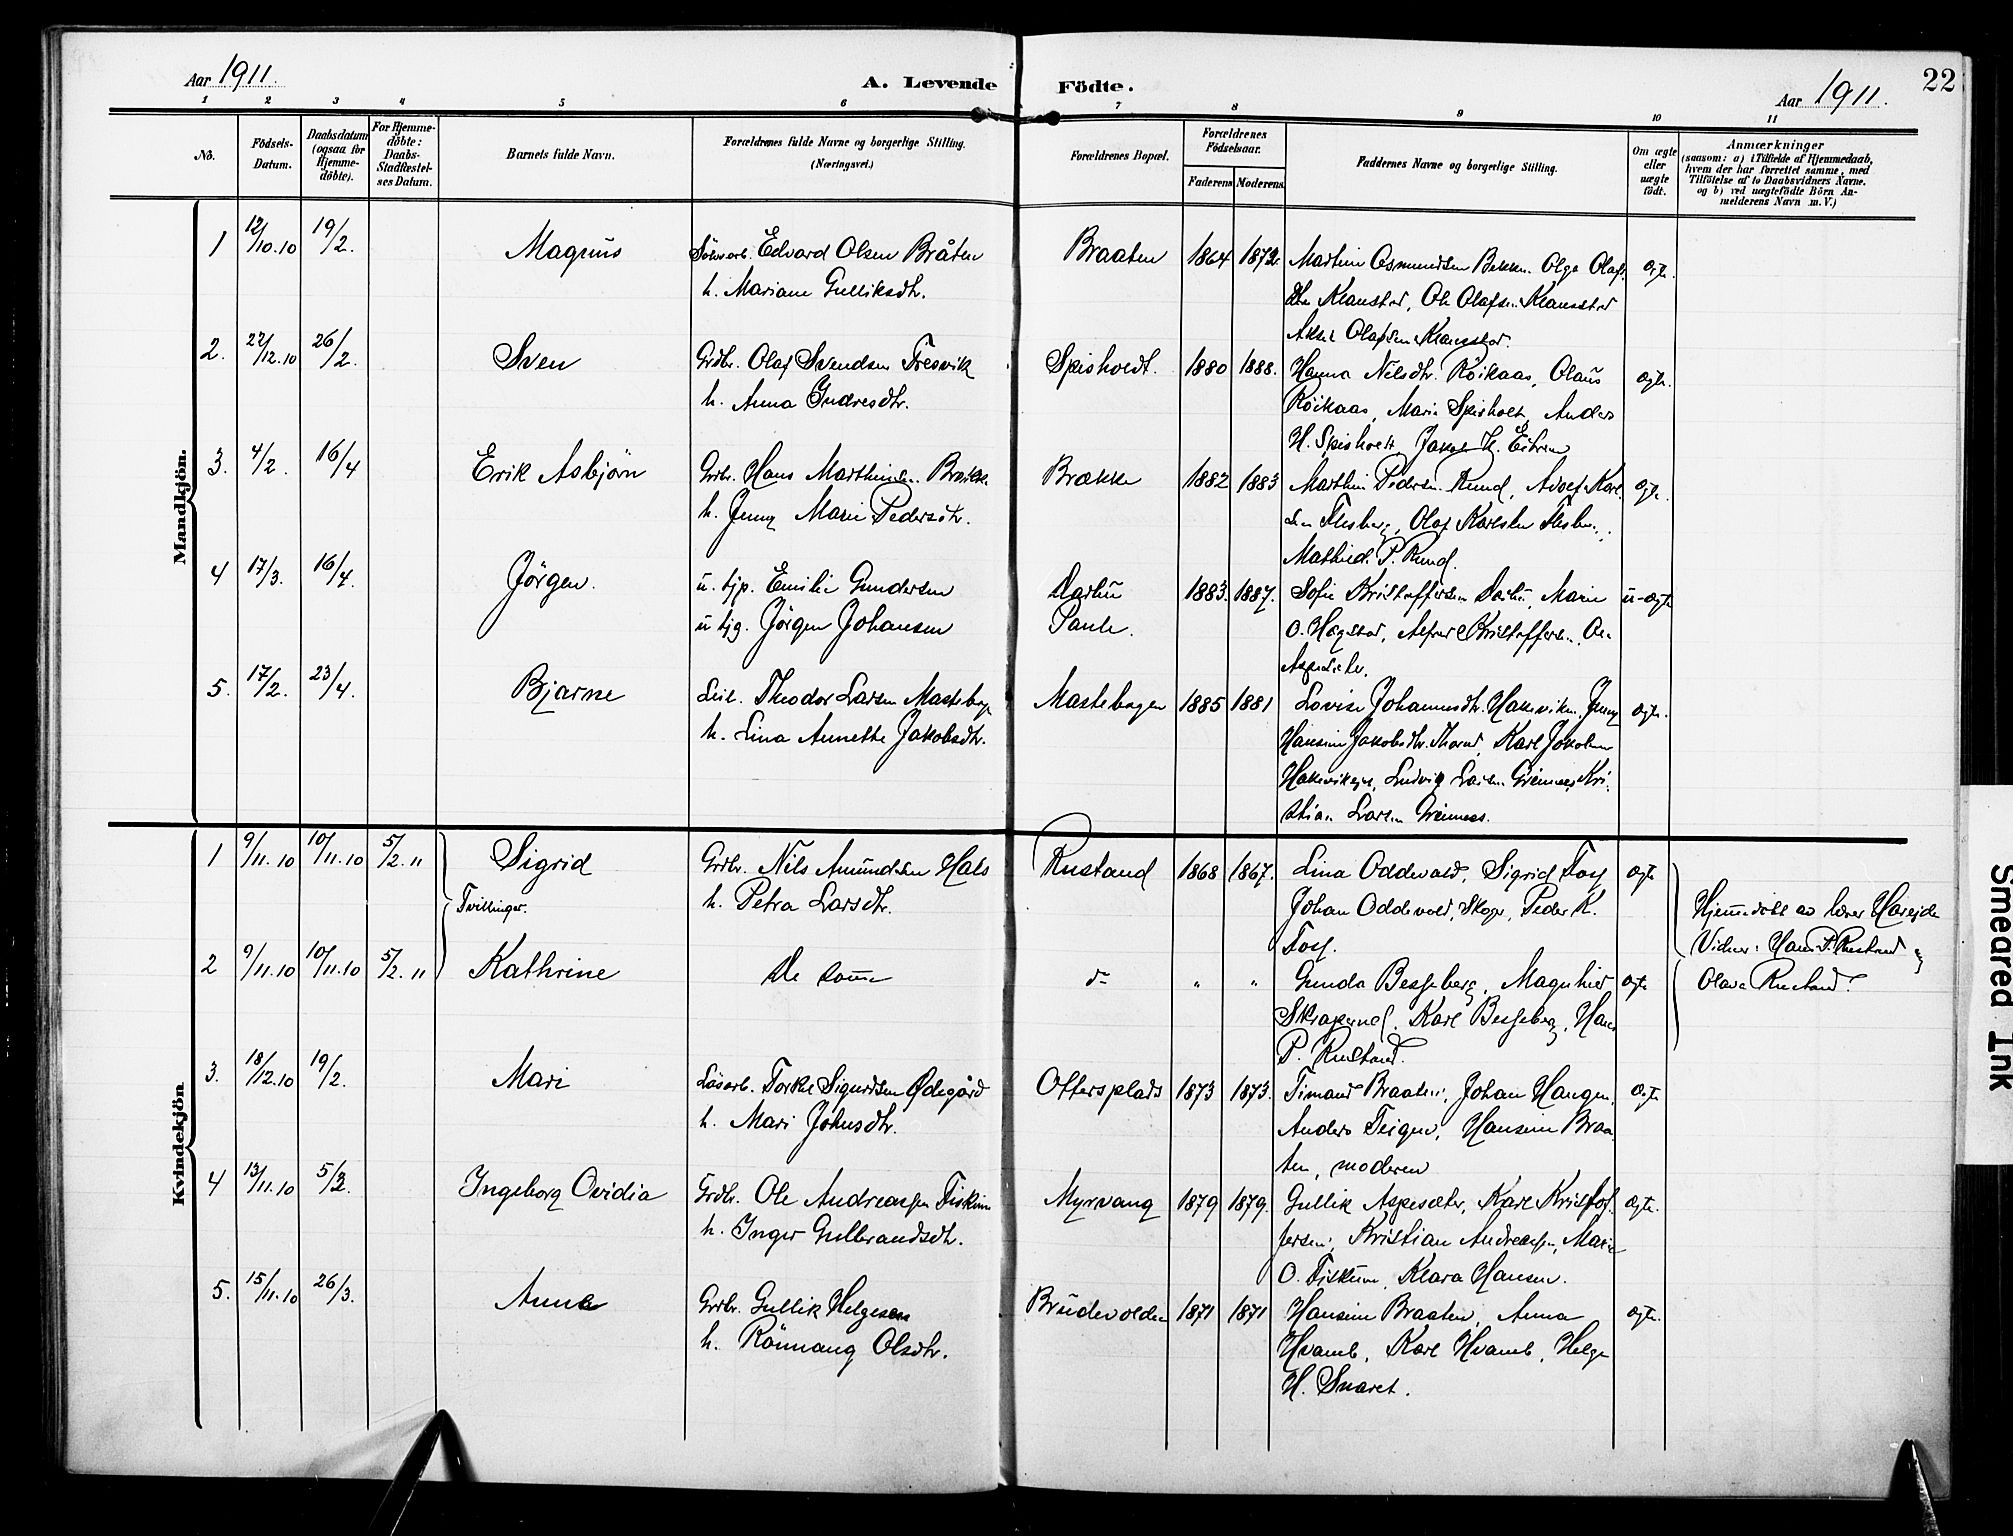 Aar 1911. A. Levende Födte. Aar 1911. 22
1 2 3 4 5 6 7 8 9 10 11
No. Födsels-Datum. Daabsdatum (ogsaa for Hjemme-döbte). For Hjemme-döbte: Daabs-Stadfæstel-ses Datum. Barnets fulde Navn. Forældrenes fulde Navne og borgerlige Stilling. (Næringsvei.) Forældrenes Bopæl. Forældrenes Födselsaar. Faderens Moderens Faddernes Navne og borgerlige Stilling. Om ægte eller uægte födt. Anmærkninger (saasom: a) i Tilfælde af Hjemmedaab, hvem der har forrettet samme, med Tilföielse af to Daabsvidners Navne. og b) ved uægtefödte Börn An-melderens Navn m. V.)
Mandkjön.
1 12/10.10 19/2. Magnus Edvard Olsen Bråten Braaten 1864 1872. Martin Osmundsen Bekken. Olga Olafs
h. Mariane Gulliksdtr. Klunstad, Ole Olafsen
Olafsen
2. 22/12.10 26/2. Sven Grdbr. Olaf Svendsen Fresvik Spisholdt. 1880 1888. Hanna Nilsdtr. Röikaas, Olaus ægte.
h. Anna Indresdtr. Röikaas, Marie Spisholt, Anders
H. Spisholt, Jakob H.
3. 4/2. 16/4 Erik Asbjörn Grbr. Hans Marthinsen Brække Brække 1882 1883 Marthin Pedersen Rund, Adolf Karl ægte.
h. Jenny Marie Pedersdtr. sen Flesberg, Olaf Karlsen
P. Rund.
4 17/3. 16/4. Jörgen. u. tjp. Emilie Gundersen 1883. 1887. Sofie Kristoffersen Marie u-ægte
u tjg. Jörgen Johansen O. Hægstad, Alfred Kristoffersen
5. 17/2. 23/4. Bjarne Theodor Larsen Mastebogen 1885 1881 Lovise Johannesdtr. Hakaviken. Jenny ægte.
h. Lina Annette Jakobsdtr. Jakobsdtr. Karl Jakobsen
Ludvig Larsen Kri-
stian Larsen
Kvindekjön
1 9/11.10 10/11.10 5/2.11 Sigrid Grdbr. Nils Amundsen Hals Rustand 1868 1867. Lina Oddevald, Sigrid Foss ægte
Tvillinger. h. Petra Larsdtr. Johan Oddevald, Peder K. Hjemmedöbt av lærer
Foss. Vidner: Hans P. Rustand og
2 9/11.10 10/11.10 5/2.11 Kathrine De samme do " " Gunda Besseberg, Magnhild ægte Olava Rustand.
Skragerud. Karl Besseberg, Hans
P. Rustand.
3. 18/12.10 19/2. Mari Lösarb. Torkel Sigurdsen Ødegård Ottersplads 1873 1873. Timand Braaten, Johan Haugen, ægte
h. Mari Johnsdtr. Anders Teigen, Hansine Braa
ten, moderen
4 13/11.10 5/3. Ingeborg Ovidia Grdbr. Ole Andreassen Fiskum Myrvang 1879 1879. Gullik Aspesæter, Karl Kristof- ægte.
h. Inger Gulbrandsdtr. fersen, Kristian Andreassen, Marie
O. Fiskum, Klara Hansen.
5. 15/11.10 26/3. Anna Grdbr. Gullik Helgesen Brudevolden 1871 1871 Hansine Braaten, Anna ægte.
h. Rönnaug Olsdtr. Hvamb, Karl Hvamb, Helge
H. Snaret.
Smeared Ink